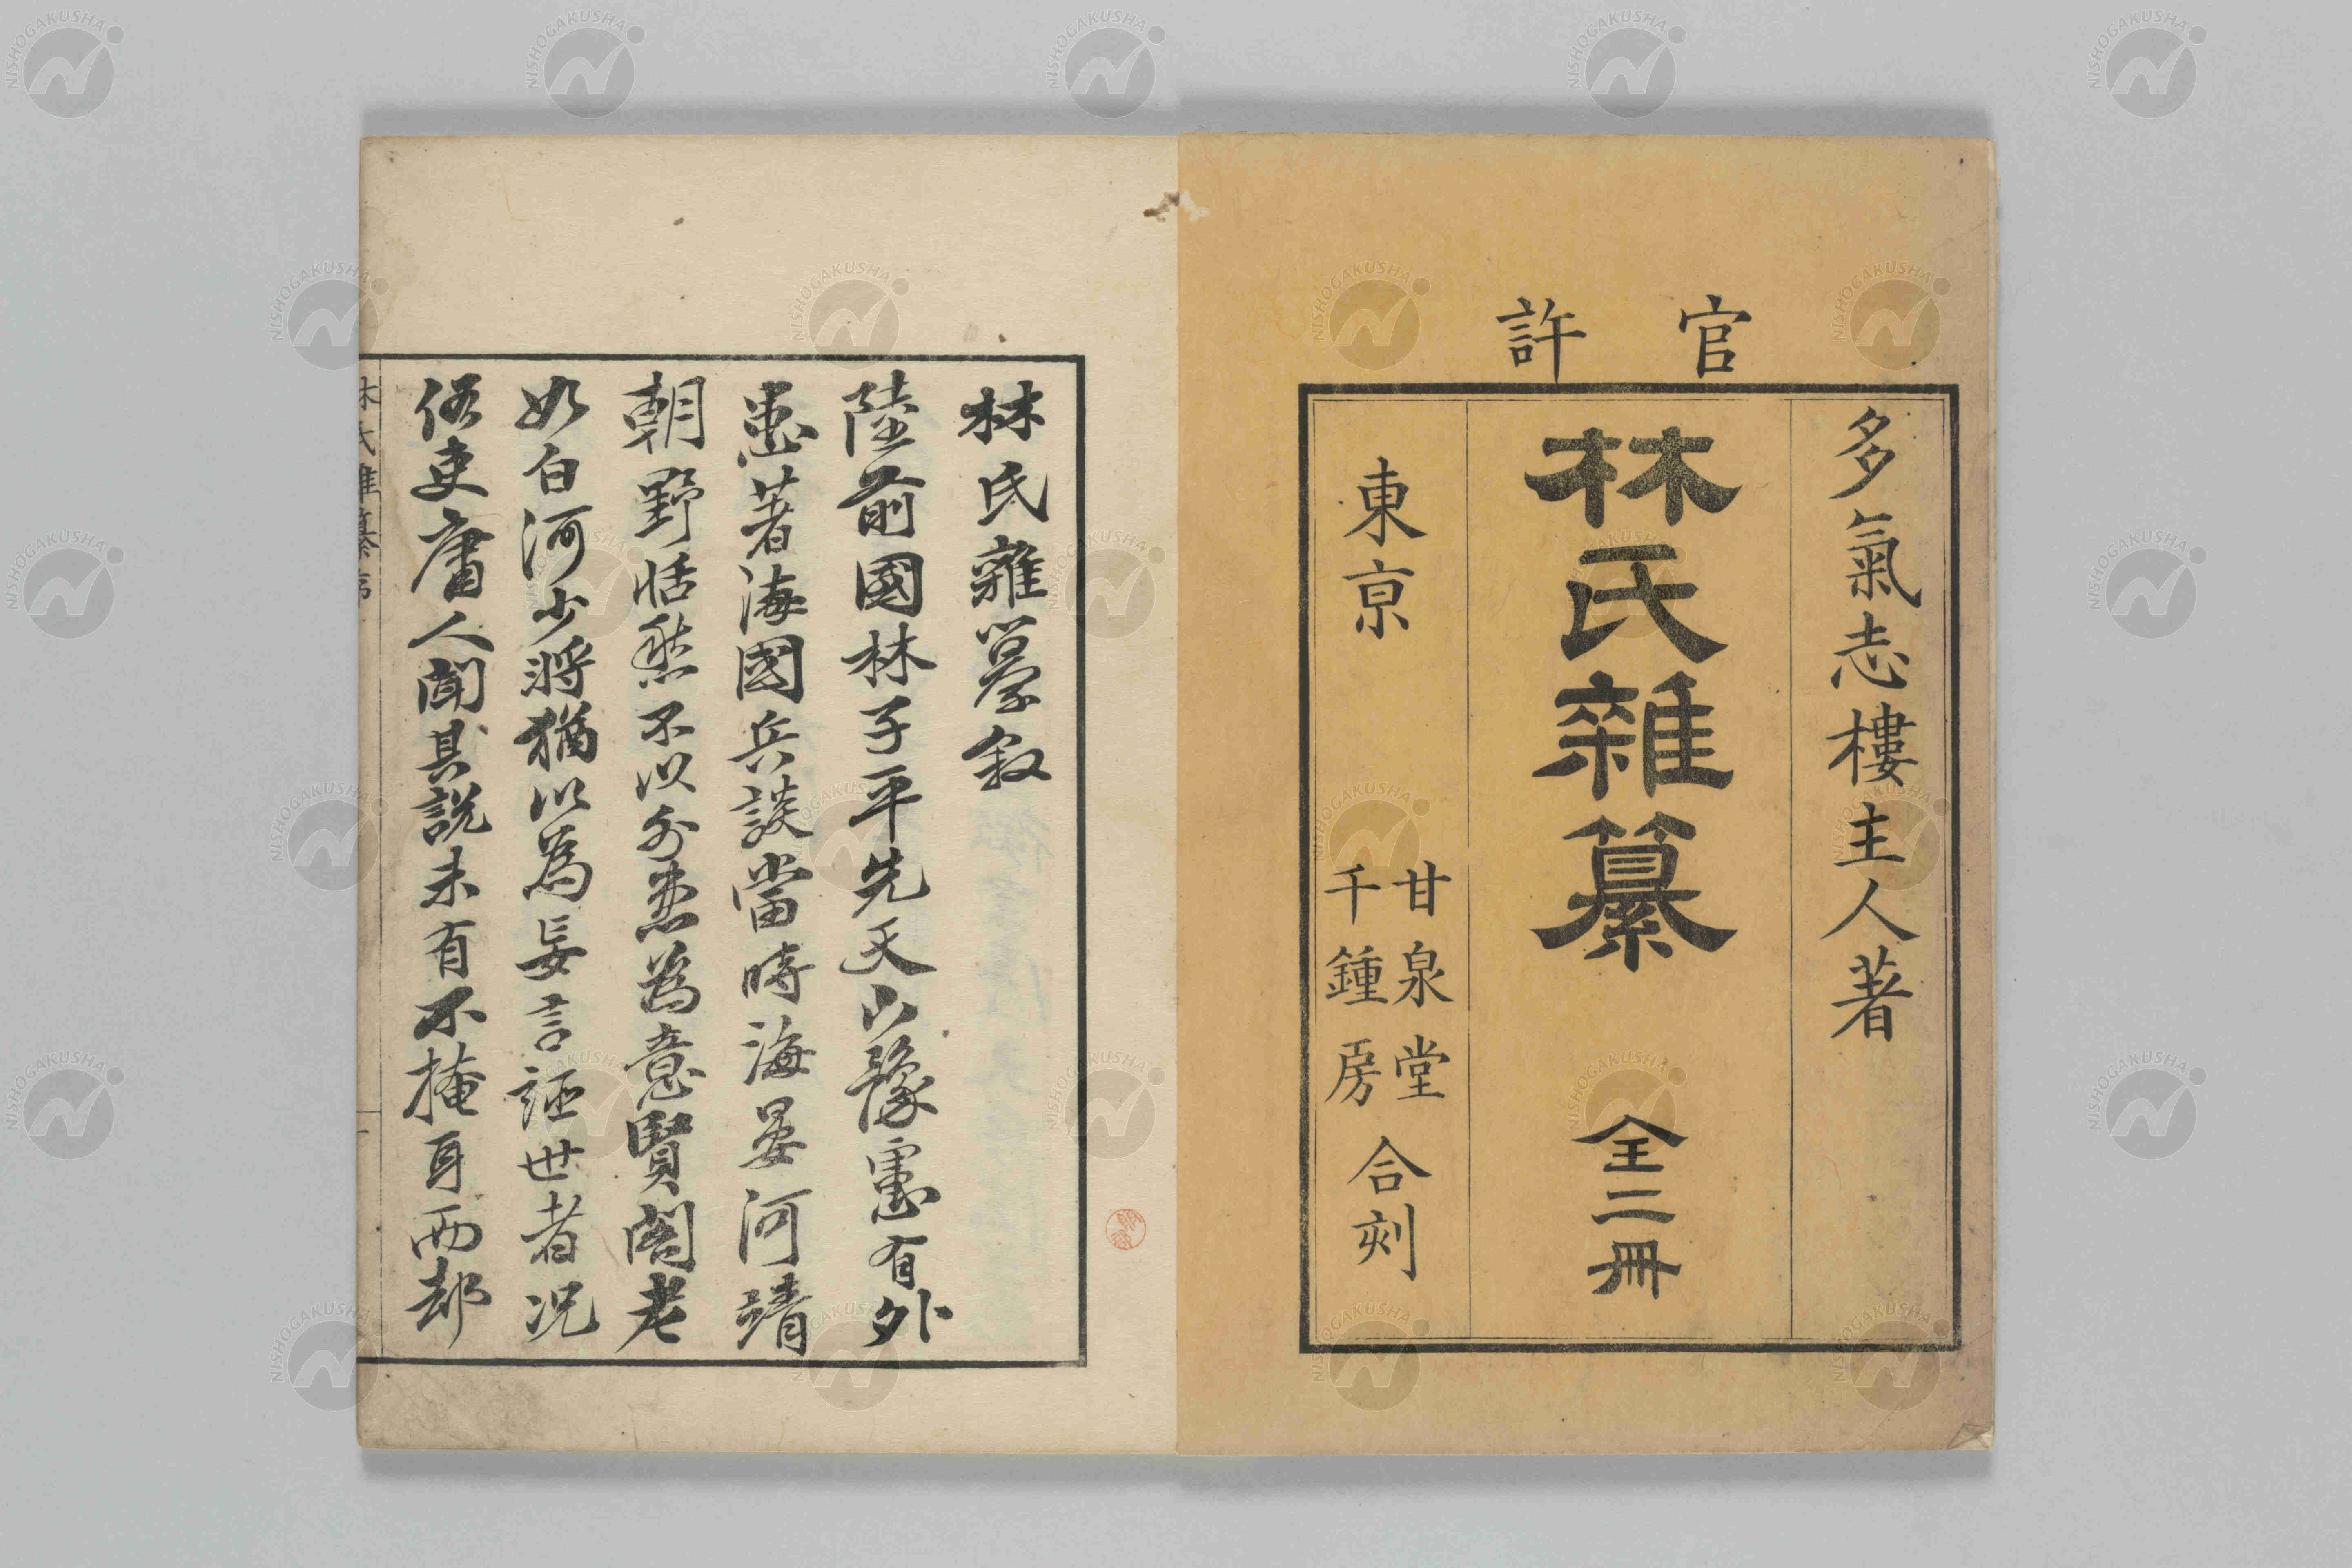 官許
多氣志樓主人著
林氏雜纂 全二冊
東京 甘泉堂 千鍾房 合刻
林氏雜纂叙
陸前國林子平先天山豫憲有外
患著海國兵談當時海晏河靖
朝野恬熙不以外患為意賢閣老
如白河少將猶以為妄言誣世者況
俗吏庸人聞其說未有不掩耳而却
林氏雜纂序
NISHOGAKUSHA